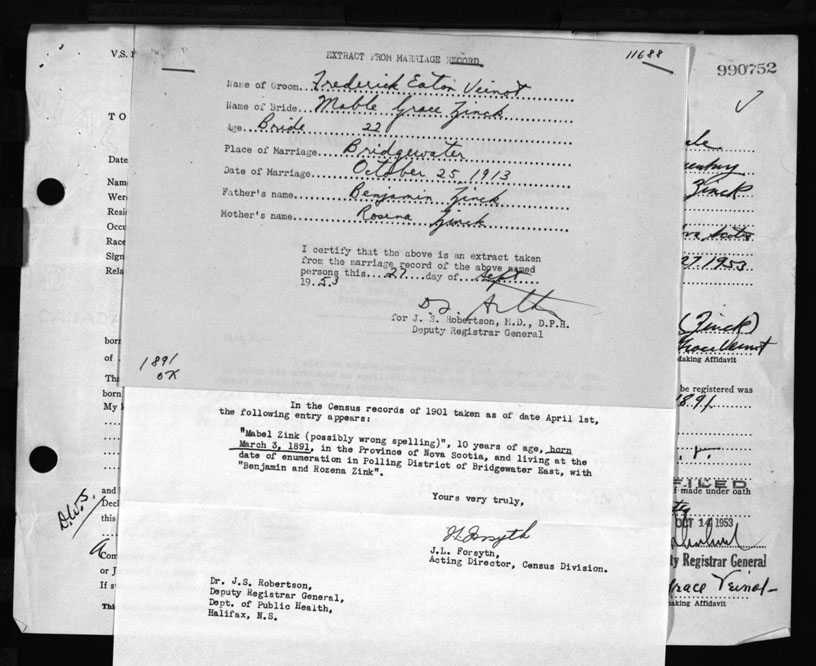 V.S.
EXTRACT FROM MARRIAGE RECORD
11688
990752
Name of Groom...Frederick Eaton Veinot
Name of Bride...Mable Grace Zinck
Age...Bride 22
Place of Marriage...Bridgewater
Date of Marriage...October 25, 1913
Father's name...Benjamin Zinck
Mother's name...Rosena Zinck
I certify that the above is an extract taken
from the marriage record of the above named
persons this...27...day of...Sept
19.53
for J. S. Robertson, M.D., D.P.H.
Deputy Registrar General
1891
OK
T O
Date
Nam
Wer
Resi
Occ
Race
Sign
Rela
born
of
Th
born
My
and
Decl
this
Com
or J
If s
This
D.W.S.
Zinck
1953
(Zinck)
Grace Veinot
Making Affidavit
be registered was
1891
FILED
made under oath
OCT 14 1953
ty Registrar General
Grace Veinot
making Affidavit
In the Census records of 1901 taken as of date April 1st,
the following entry appears:
"Mabel Zink (possibly wrong spelling)", 10 years of age, born
March 3, 1891, in the Province of Nova Scotia, and living at the
date of enumeration in Polling District of Bridgewater East, with
"Benjamin and Rozena Zink".
Yours very truly,
J L Forsyth
J.L. Forsyth,
Acting Director, Census Division.
Dr. J.S. Robertson,
Deputy Registrar General,
Dept. of Public Health,
Halifax, N.S.